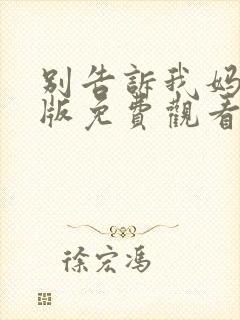 别告訴我妈
版免費觀看
徐宏冯